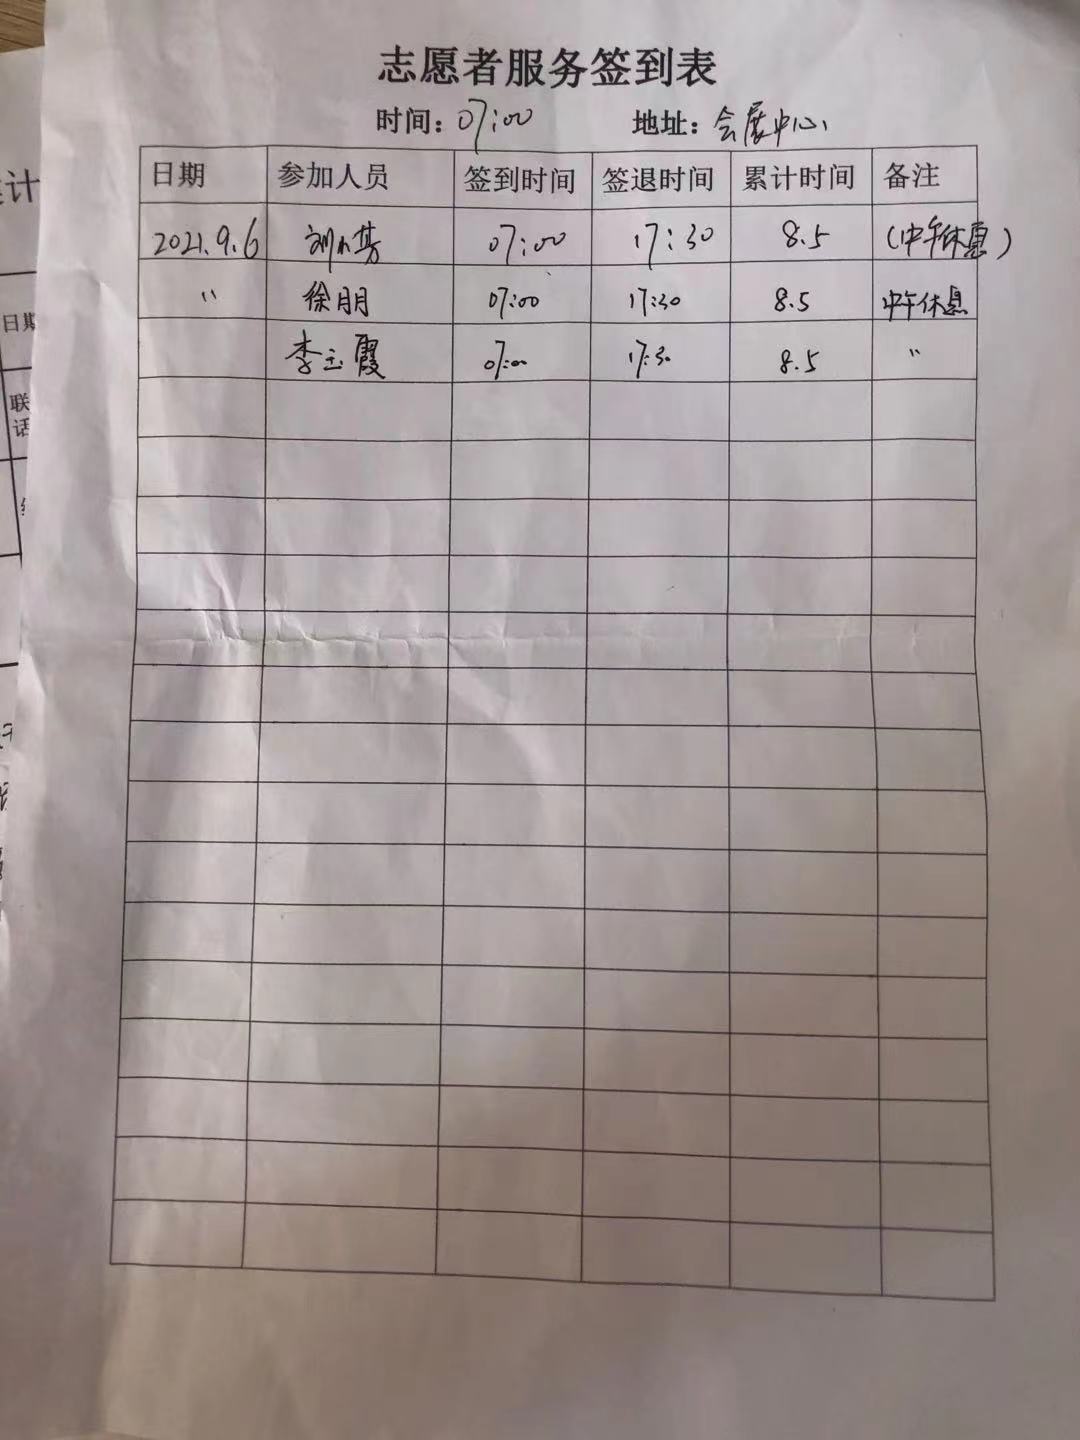 志愿者服务签到表
时间：07:00 地址：会展中心
日期 参加人员 签到时间 签退时间 累计时间 备注
2021.9.6 刘小芳 07:00 17:30 8.5 (中午休息)
" 徐朋 07:00 17:30 8.5 中午休息
李玉霞 07:00 17:30 8.5 "
计
日期
联
话